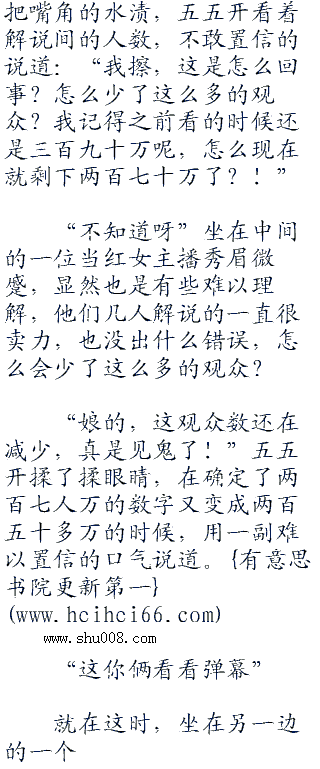 把嘴角的水渍，五五开看着
解说间的人数，不敢置信的
说道：“我擦，这是怎么回
事？怎么少了这么多的观
众？我记得之前看的时候还
是三百九十万呢，怎么现在
就剩下两百七十万了？！”
“不知道呀”坐在中间
的一位当红女主播秀眉微
蹙，显然也是有些难以理
解，他们几人解说的一直很
卖力，也没出什么错误，怎
么会少了这么多的观众？
“娘的，这观众数还在
减少，真是见鬼了！”五五
开揉了揉眼睛，在确定了两
百七人万的数字又变成两百
五十多万的时候，用一副难
以置信的口气说道。{有意思
书院更新第一}
(www.hcihci66.com)
www.shu008.com
“这你俩看看弹幕”
就在这时，坐在另一边
的一个